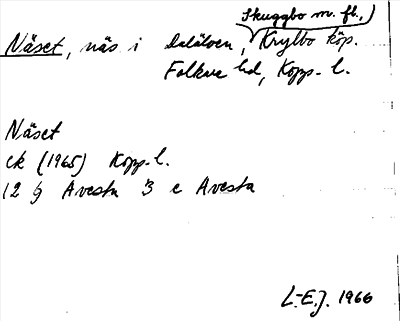 Skuggbo m. fl.,)
Näset, näs i Dalälven, Krylbo köp.
Folkare hd, Kopp. l.
Näset
ek (1965) Kopp. l.
12 G Avesta 3 e Avesta
L-E.J. 1966